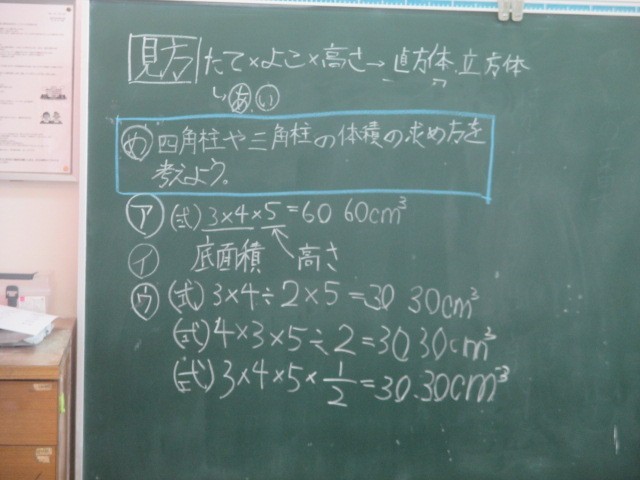 見方 たて×よこ×高さ→直方体、立方体
あ い
め 四角柱や三角柱の体積の求め方を
考えよう。
ア (式) 3×4×5=60 60cm³
イ 底面積 高さ
ウ (式) 3×4÷2×5=30 30cm³
(式) 4×3×5÷2=30 30cm³
(式) 3×4×5×1/2=30. 30cm³